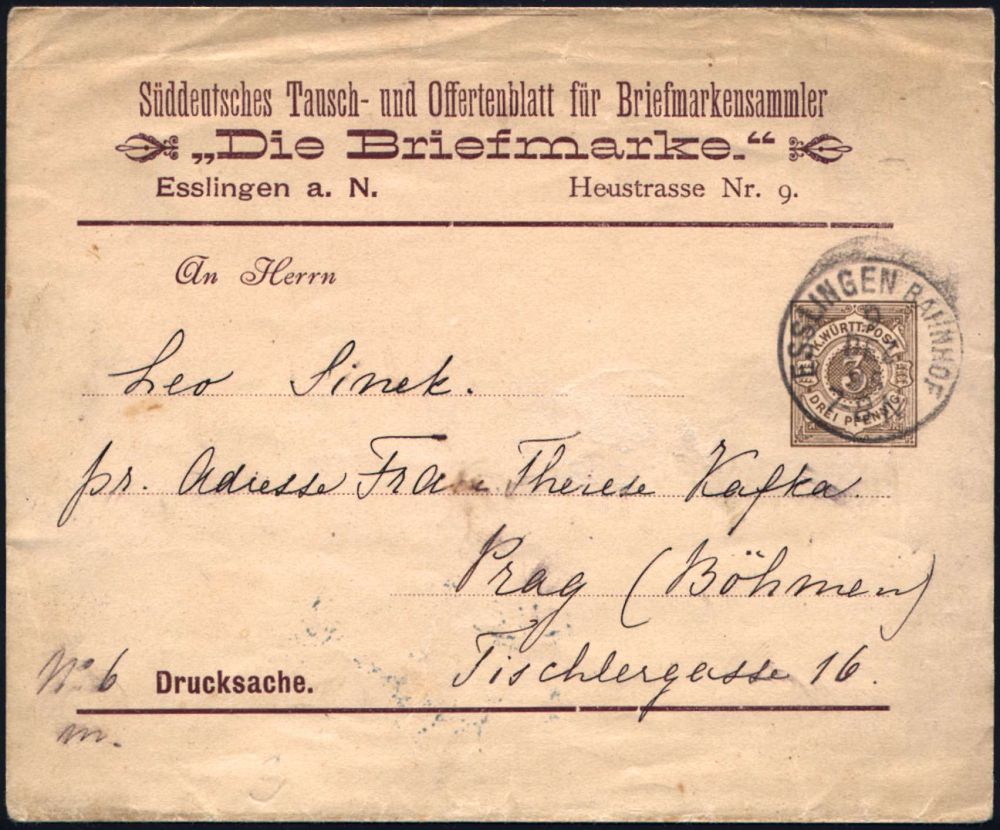 Süddeutsches Tausch- und Offertenblatt für Briefmarkensammler
„Die Briefmarke.“
Esslingen a. N. Heustrasse Nr. 9.
An Herrn
ESSLINGEN BAHNHOF
K. WÜRTT. POST
3
DREI PFENNIG
Leo Sinek.
pr. Adresse Frau Therese Kafka.
Prag (Böhmen)
Tischlergasse 16.
No. 6 Drucksache.
m.